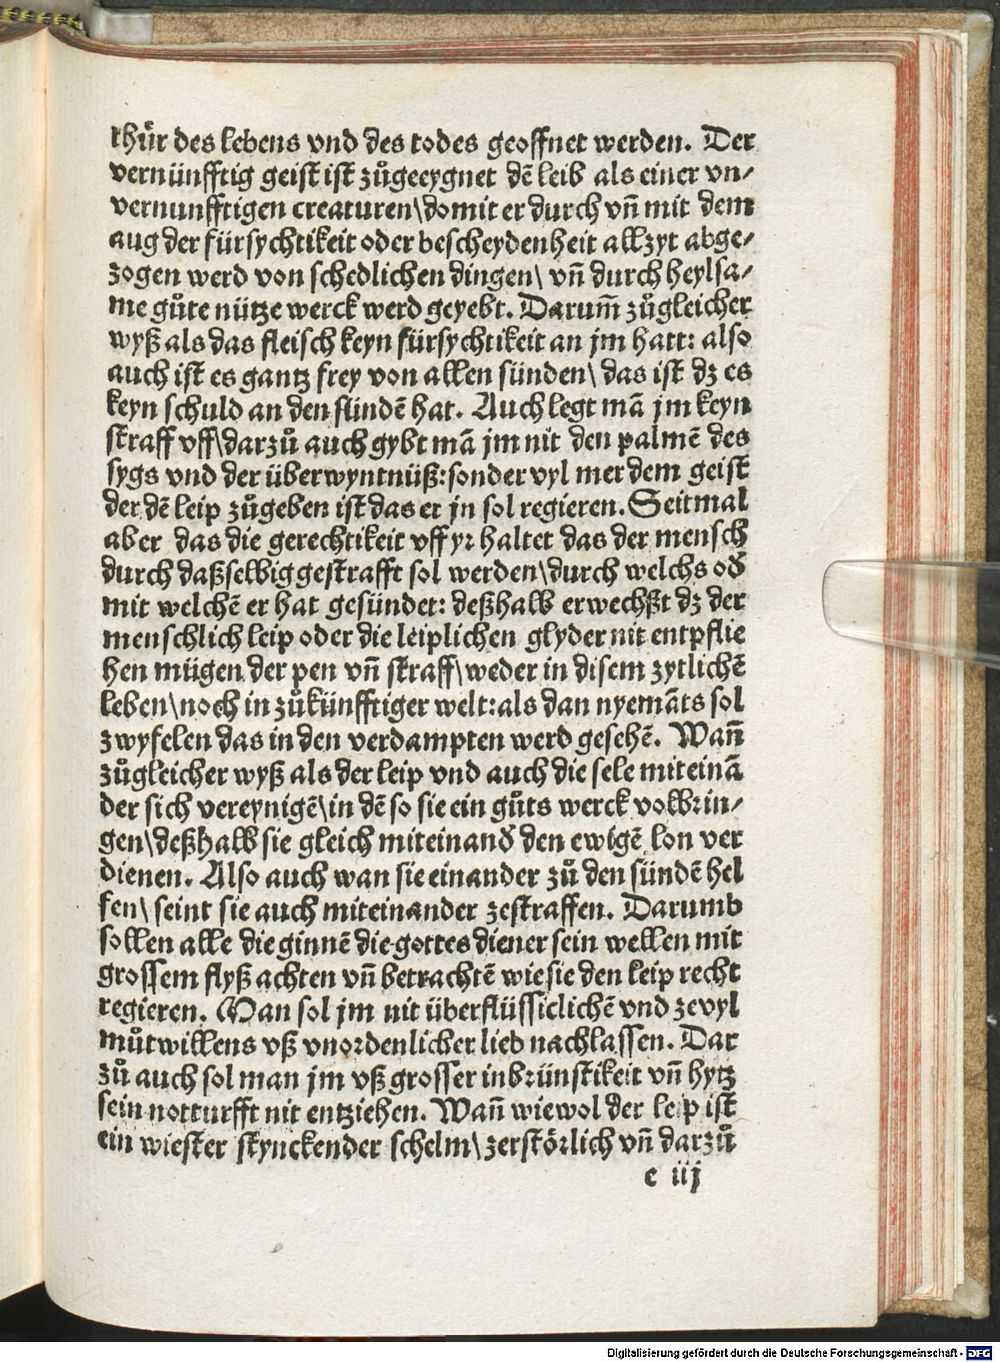 thür des lebens vnd des todes geoffnet werden. Der
vernünfftig geist ist zůgeeygnet dē leib als einer vn⸗
vernunfftigen creaturen\domit er durch vn̄ mit dem
aug der fürsychtikeit oder bescheydenheit allzyt abge⸗
zogen werd von schedlichen dingen\ vn̄ durch heylsa⸗
me gůte nütze werck werd geyebt. Darum̄ zůgleicher
wyß als das fleisch keyn fürsychtikeit an jm hatt: also
auch ist es gantz frey von allen sünden\ das ist dz es
keyn schuld an den sündē hat. Auch legt mā jm keyn
straff vff\darzů auch gybt mā jm nit den palmē des
sygs vnd der überwyntnüß: sonder vyl mer dem geist
der dē leip zůgeben ist das er jn sol regieren. Seitmal
aber das die gerechtikeit vff yr haltet das der mensch
durch daßselbig gestrafft sol werden\durch welchs oď
mit welchē er hat gesündet: deßhalb erwechßt dz der
menschlich leip oder die leiplichen glyder nit entpflie
hen mügen der pen vn̄ straff\weder in disem zytlichē
leben\noch in zůkünfftiger welt: als dan nyemāts sol
zwyfelen das in den verdampten werd gesehē. Wan̄
zůgleicher wyß als der leip vnd auch die sele miteinā
der sich vereynigē\in dē so sie ein gůts werck volbrin⸗
gen\deßhalb sie gleich miteinanď den ewigē lon ver
dienen. Also auch wan sie einander zů den sündē hel
fen\ seint sie auch miteinander zestraffen. Darumb
sollen alle die ginnē die gottes diener sein wellen mit
grossem flyß achten vn̄ betrachtē wie sie den leip recht
regieren. Man sol jm nit überflüssiclichē vnd zevyl
můtwillens vß vnordenlicher lieb nachlassen. Dar
zů auch sol man jm vß grosser inbrünstikeit vn̄ hytz
sein notturfft nit entziehen. Wan̄ wiewol der leip ist
ein wiester stynckender schelm\ zerstörlich vn̄ darzů
c iij
Digitalisierung gefördert durch die Deutsche Forschungsgemeinschaft - DFG